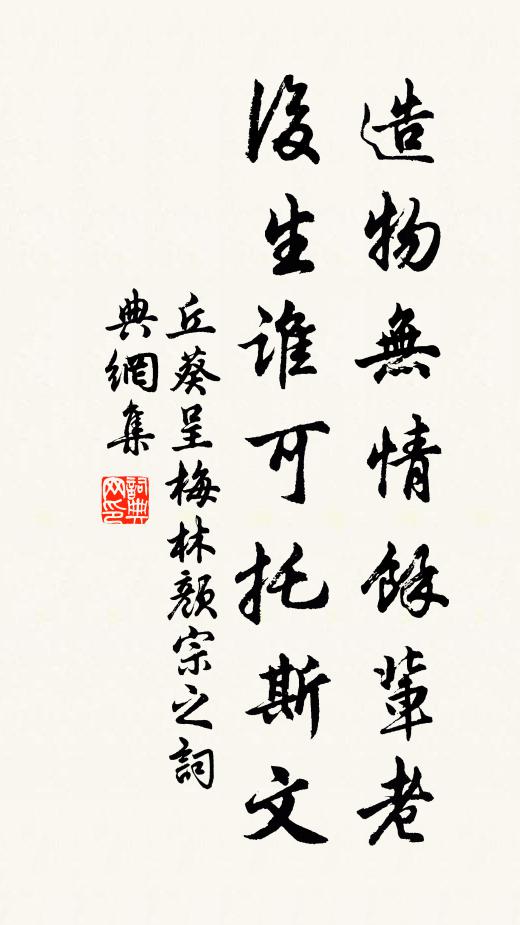 造物無情餘輩老
後生誰可托斯文
丘葵呈梅林顏宗之詞
典網集
詞典
网印